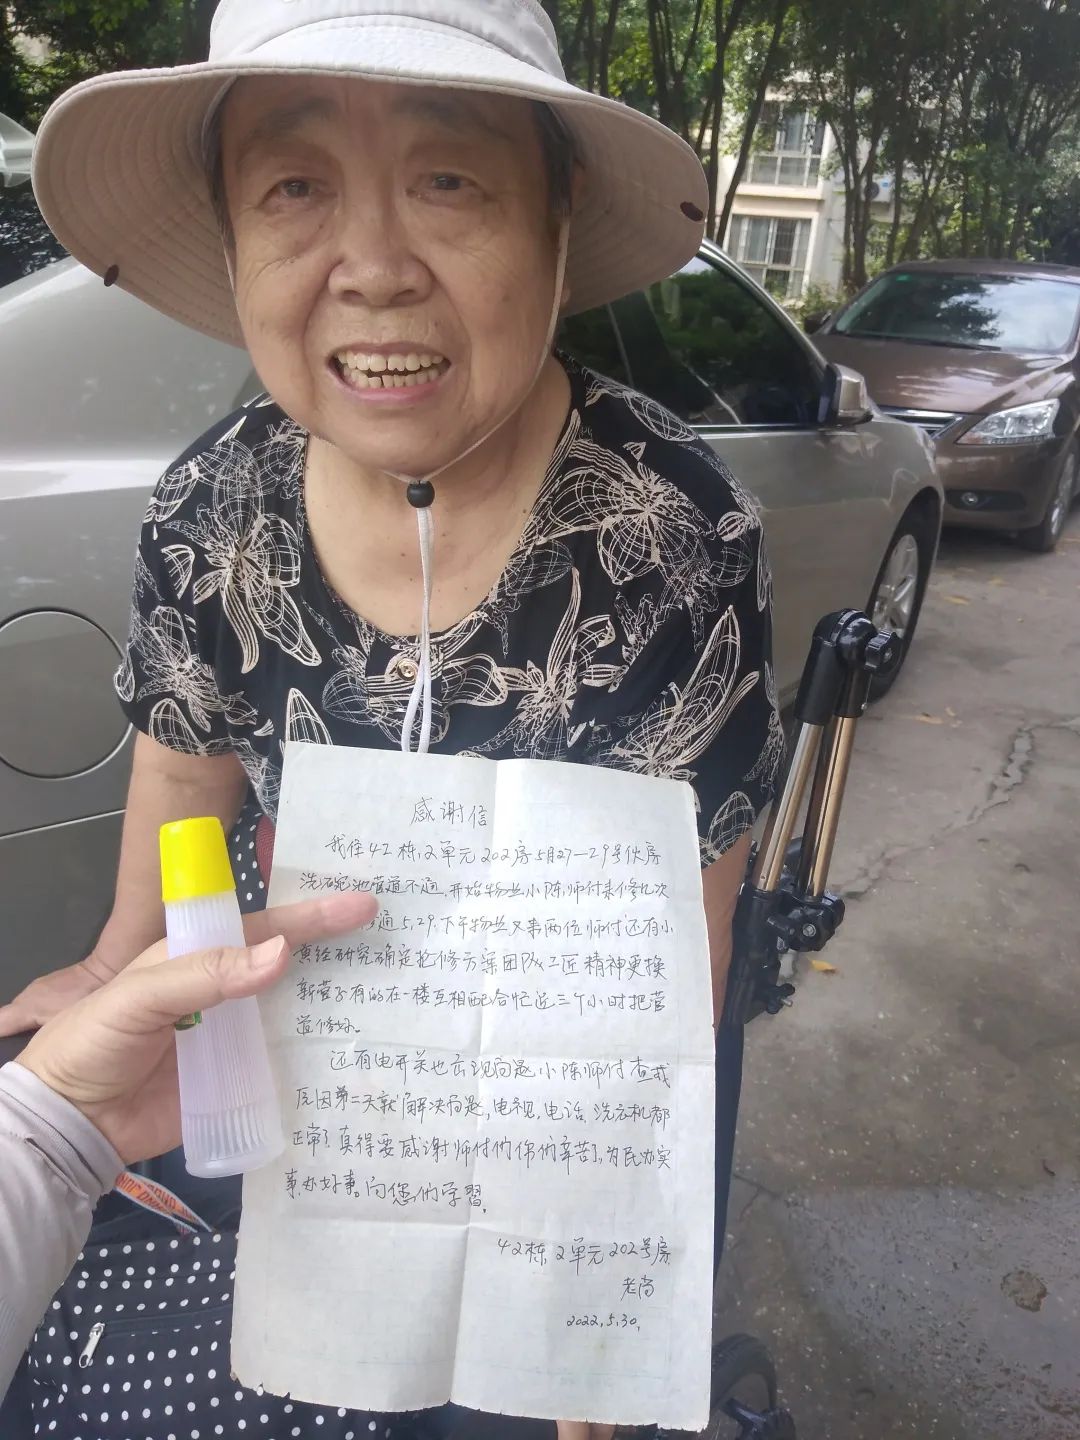 感谢信
我住42栋2单元202房5月27—29号伙房
洗碗池管道不通,开始物业小陈师付来修几次
通5.29.下午物业又来两位师付还有小
经研究确定抢修方案团队工匠精神更换
新管子有的在一楼互相配合忙近三个小时把管
道修好。
还有电开关也出现问题小陈师付查找
原因第二天就解决问题,电视,电话,洗衣机都
正常了真得要感谢师付们你们辛苦了,为民办实
事,办好事。向您们学習。
42栋2单元202号房
老尚
2022.5.30.